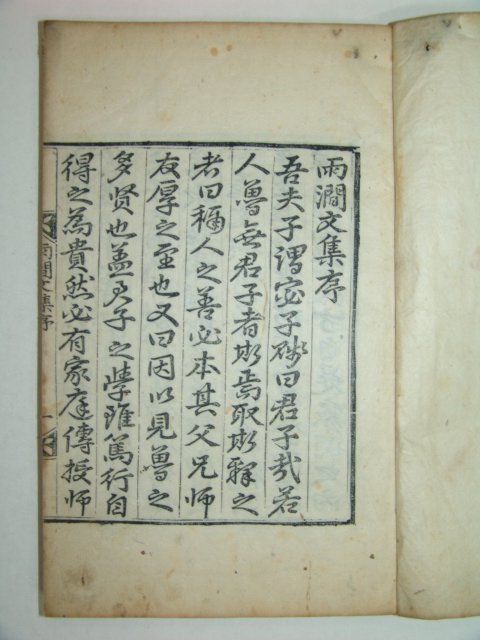 雨澗文集序
吾夫子謂宓子賤曰君子哉若
人魯無君子者斯焉取斯釋之
者曰稱人之善必本其父兄師
友厚之至也又曰因以見魯之
多賢也盖君子之學雖篤行自
得之為貴然必有家庭傳授師
雨澗文集序 一